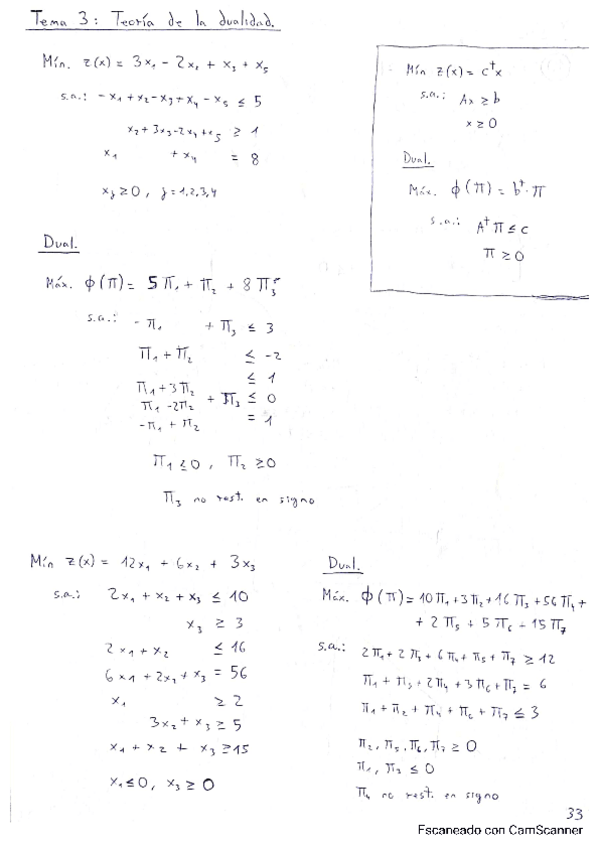 Tema 3: Teoría de la dualidad.
Mín. z(x) = 3x₁ - 2x₂ + x₃ + x₅
s.a.: -x₁ + x₂ - x₃ + x₄ - x₅ ≤ 5
x₂ + 3x₃ - 2x₄ + x₅ ≥ 1
x₁ + x₄ = 8
xⱼ ≥ 0, j = 1,2,3,4
Mín z(x) = cᵗx
s.a.: Ax ≥ b
x ≥ 0
Dual.
Máx. ϕ(π) = bᵗ·π
s.a.: Aᵗπ ≤ c
π ≥ 0
Dual.
Máx. ϕ(π) = 5π₁ + π₂ + 8π₃
s.a.: -π₁ + π₃ ≤ 3
π₁ + π₂ ≤ -2
π₁ + 3π₂ ≤ 1
π₁ - 2π₂ + π₃ ≤ 0
-π₁ + π₂ = 1
π₁ ≤ 0, π₂ ≥ 0
π₃ no rest. en signo
Mín z(x) = 12x₁ + 6x₂ + 3x₃
s.a.: 2x₁ + x₂ + x₃ ≤ 10
x₃ ≥ 3
2x₁ + x₂ ≤ 16
6x₁ + 2x₂ + x₃ = 56
x₁ ≥ 2
3x₂ + x₃ ≥ 5
x₁ + x₂ + x₃ ≥ 15
x₁ ≤ 0, x₃ ≥ 0
Dual.
Máx. ϕ(π) = 10π₁ + 3π₂ + 16π₃ + 56π₄ +
+ 2π₅ + 5π₆ + 15π₇
s.a.: 2π₁ + 2π₃ + 6π₄ + π₅ + π₇ ≥ 12
π₁ + π₃ + 2π₄ + 3π₆ + π₇ = 6
π₁ + π₂ + π₄ + π₆ + π₇ ≤ 3
π₂, π₅, π₆, π₇ ≥ 0
π₁, π₃ ≤ 0
π₄ no rest. en signo
33
Escaneado con CamScanner